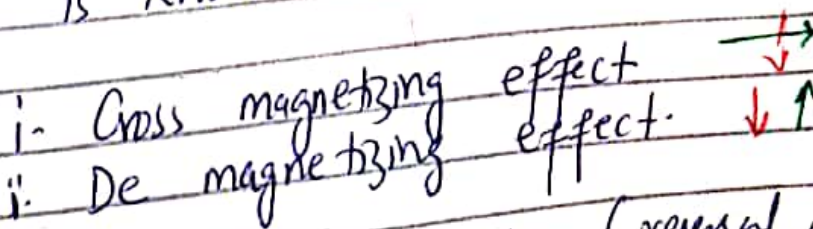 is
i- Cross magnetizing effect
ii. De magnetizing effect.